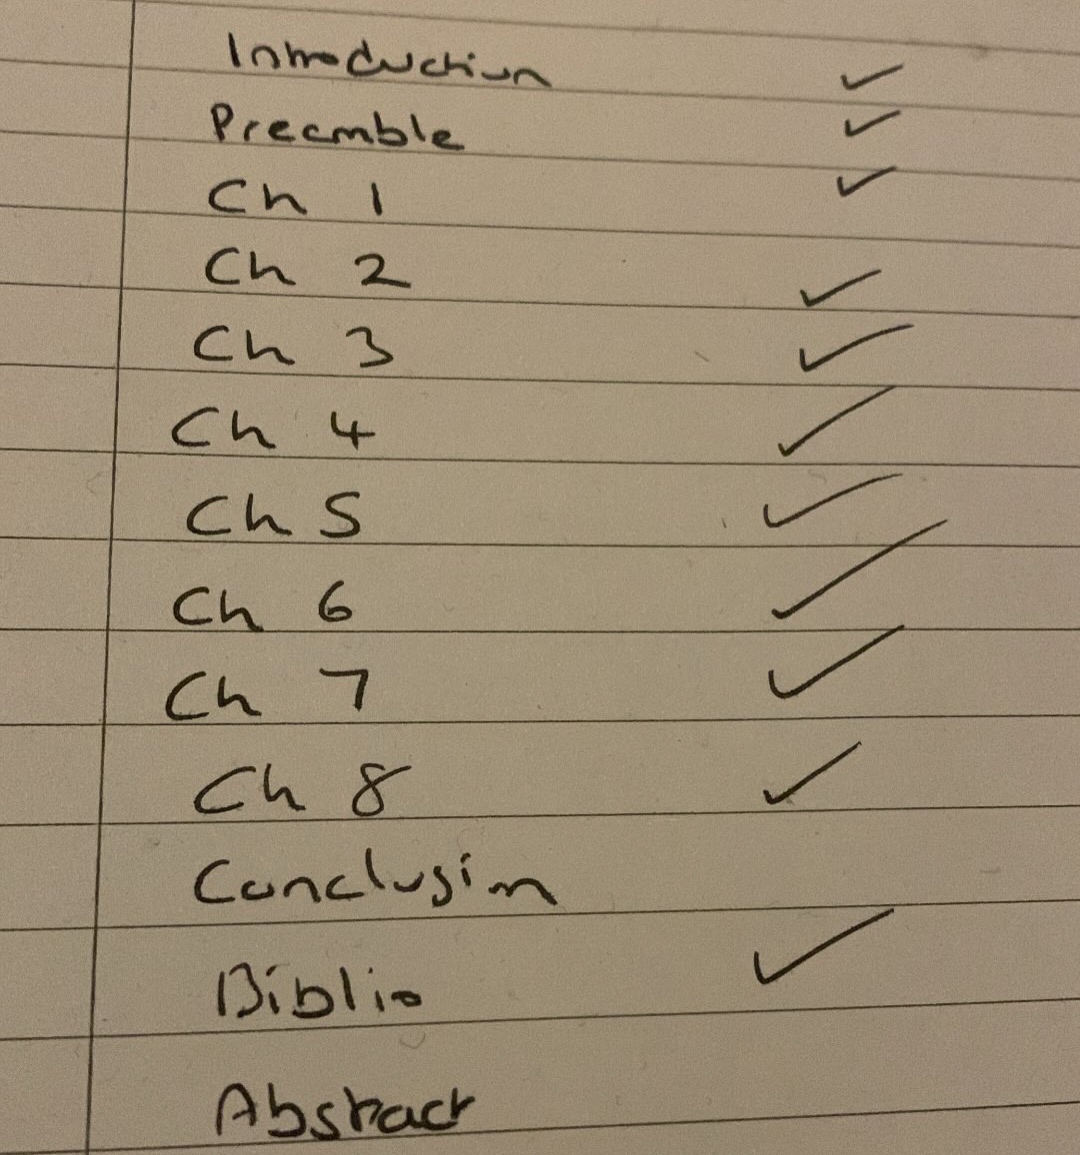 Introduction ✓
Preamble ✓
Ch 1 ✓
Ch 2 ✓
Ch 3 ✓
Ch 4 ✓
Ch 5 ✓
Ch 6 ✓
Ch 7 ✓
Ch 8 ✓
Conclusion
Biblio ✓
Abstract